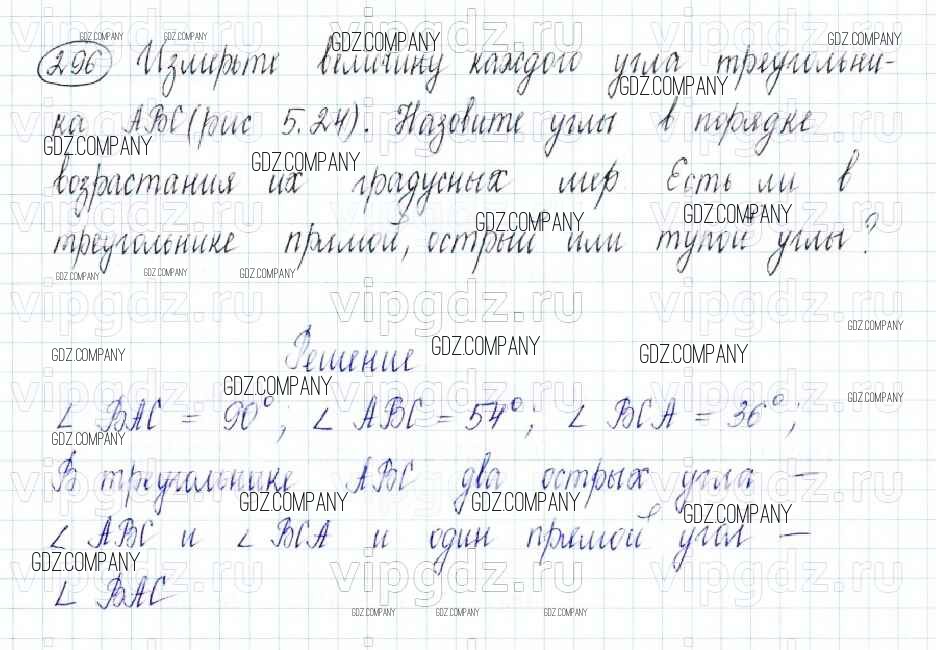 296 Измерьте величину каждого угла треугольни-
ка ABC (рис 5.24). Назовите углы в порядке
возрастания их градусных мер. Есть ли в
треугольнике прямой, острый или тупой углы?
Решение
∠ BAC = 90°; ∠ ABC = 54°; ∠ BCA = 36°;
В треугольнике ABC два острых угла —
∠ ABC и ∠ BCA и один прямой угол —
∠ BAC